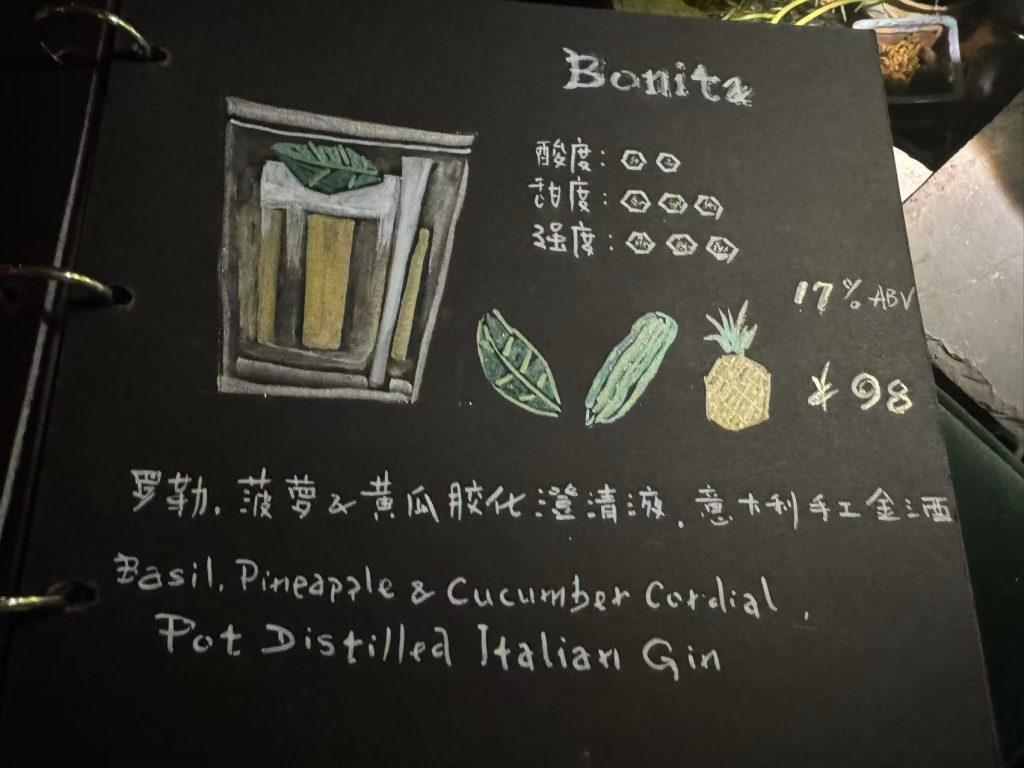 Bonita
酸度：
甜度：
强度：
17% ABV
¥98
罗勒, 菠萝&黄瓜胶化澄清液, 意大利手工金酒
Basil, Pineapple & Cucumber Cordial,
Pot Distilled Italian Gin